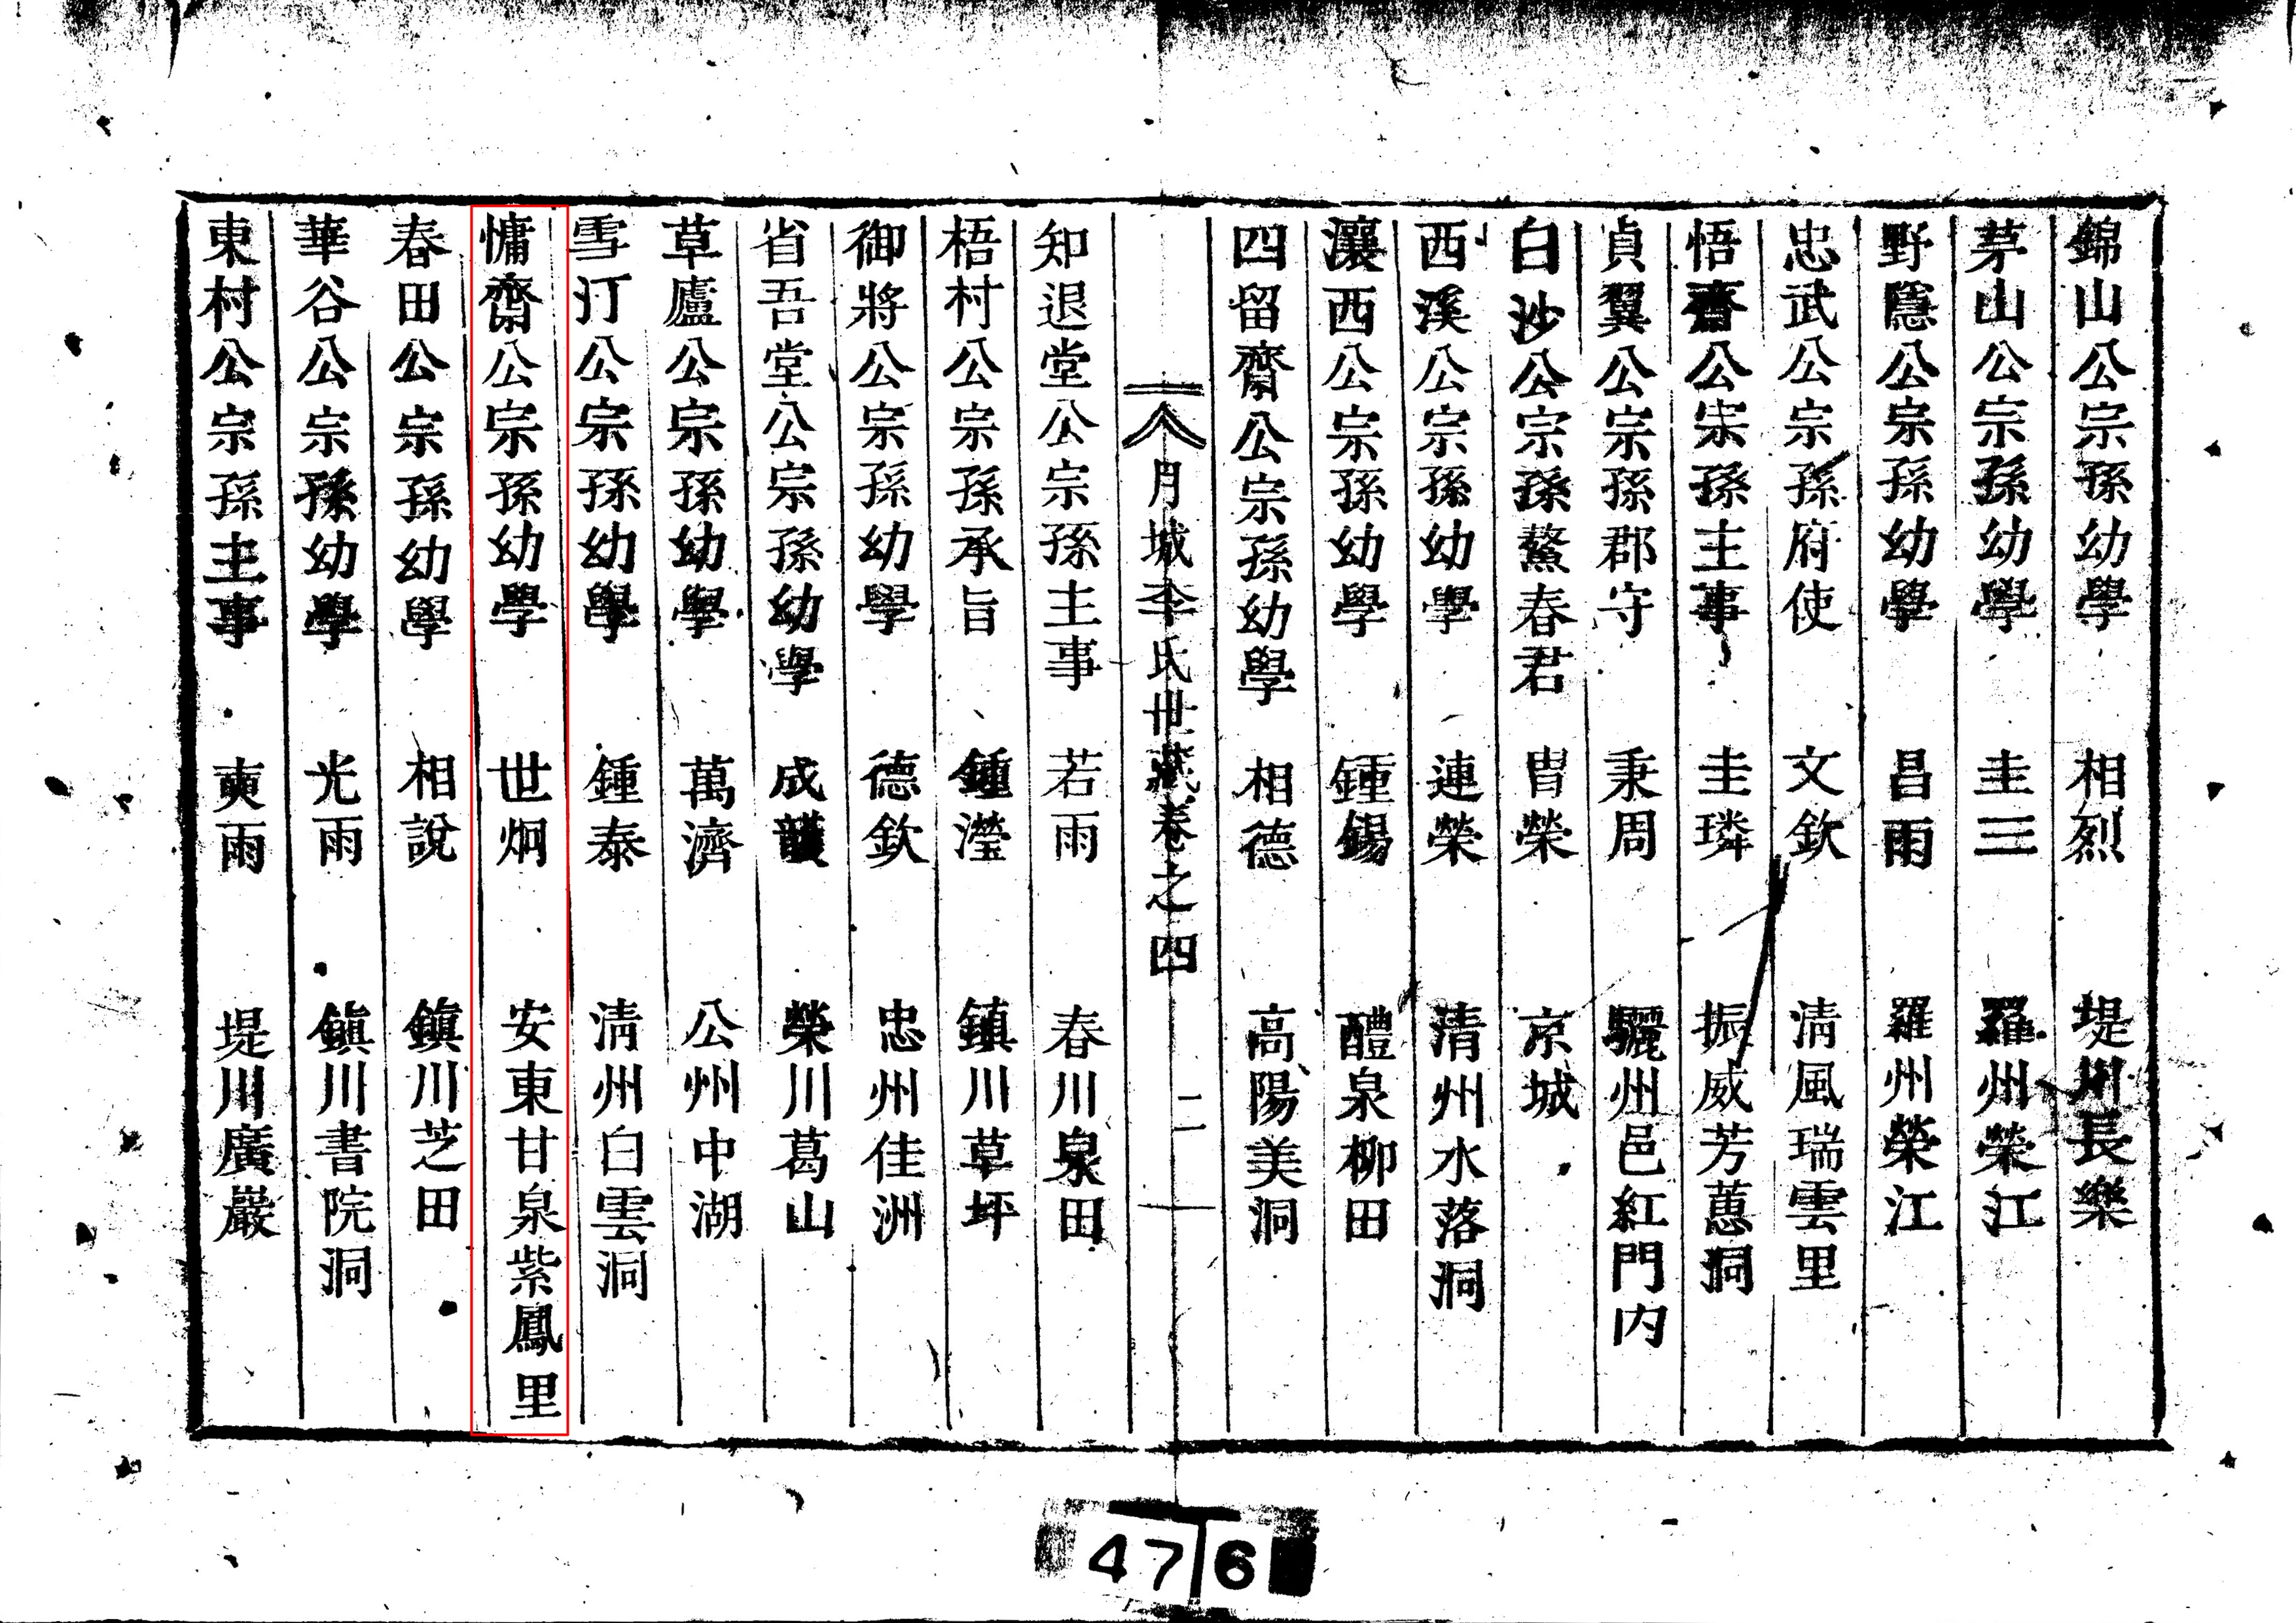 錦山公宗孫幼學 相烈 堤川長樂
茅山公宗孫幼學 圭三 羅州榮江
野隱公宗孫幼學 昌雨 羅州榮江
忠武公宗孫府使 文欽 淸風瑞雲里
悟齋公宗孫主事 圭璘 振威芳蕙洞
貞翼公宗孫郡守 秉周 驪州邑紅門内
白沙公宗孫鰲春君 胄榮 京城
西溪公宗孫幼學 連榮 清州水落洞
瀼西公宗孫幼學 鍾錫 醴泉柳田
四留齋公宗孫幼學 相德 高陽美洞
月城李氏世蕆卷之四 二
知退堂公宗孫主事 若雨 春川泉田
梧村公宗孫承旨 鍾瀅 鎮川草坪
御將公宗孫幼學 德欽 忠州佳洲
省吾堂公宗孫幼學 成護 榮川葛山
草廬公宗孫幼學 萬濟 公州中湖
雪汀公宗孫幼學 鍾泰 清州白雲洞
慵齋公宗孫幼學 世炯 安東甘泉紫鳳里
春田公宗孫幼學 相說 鎮川芝田
華谷公宗孫幼學 光雨 鎮川書院洞
東村公宗孫主事 奭雨 堤川廣巖
47 6